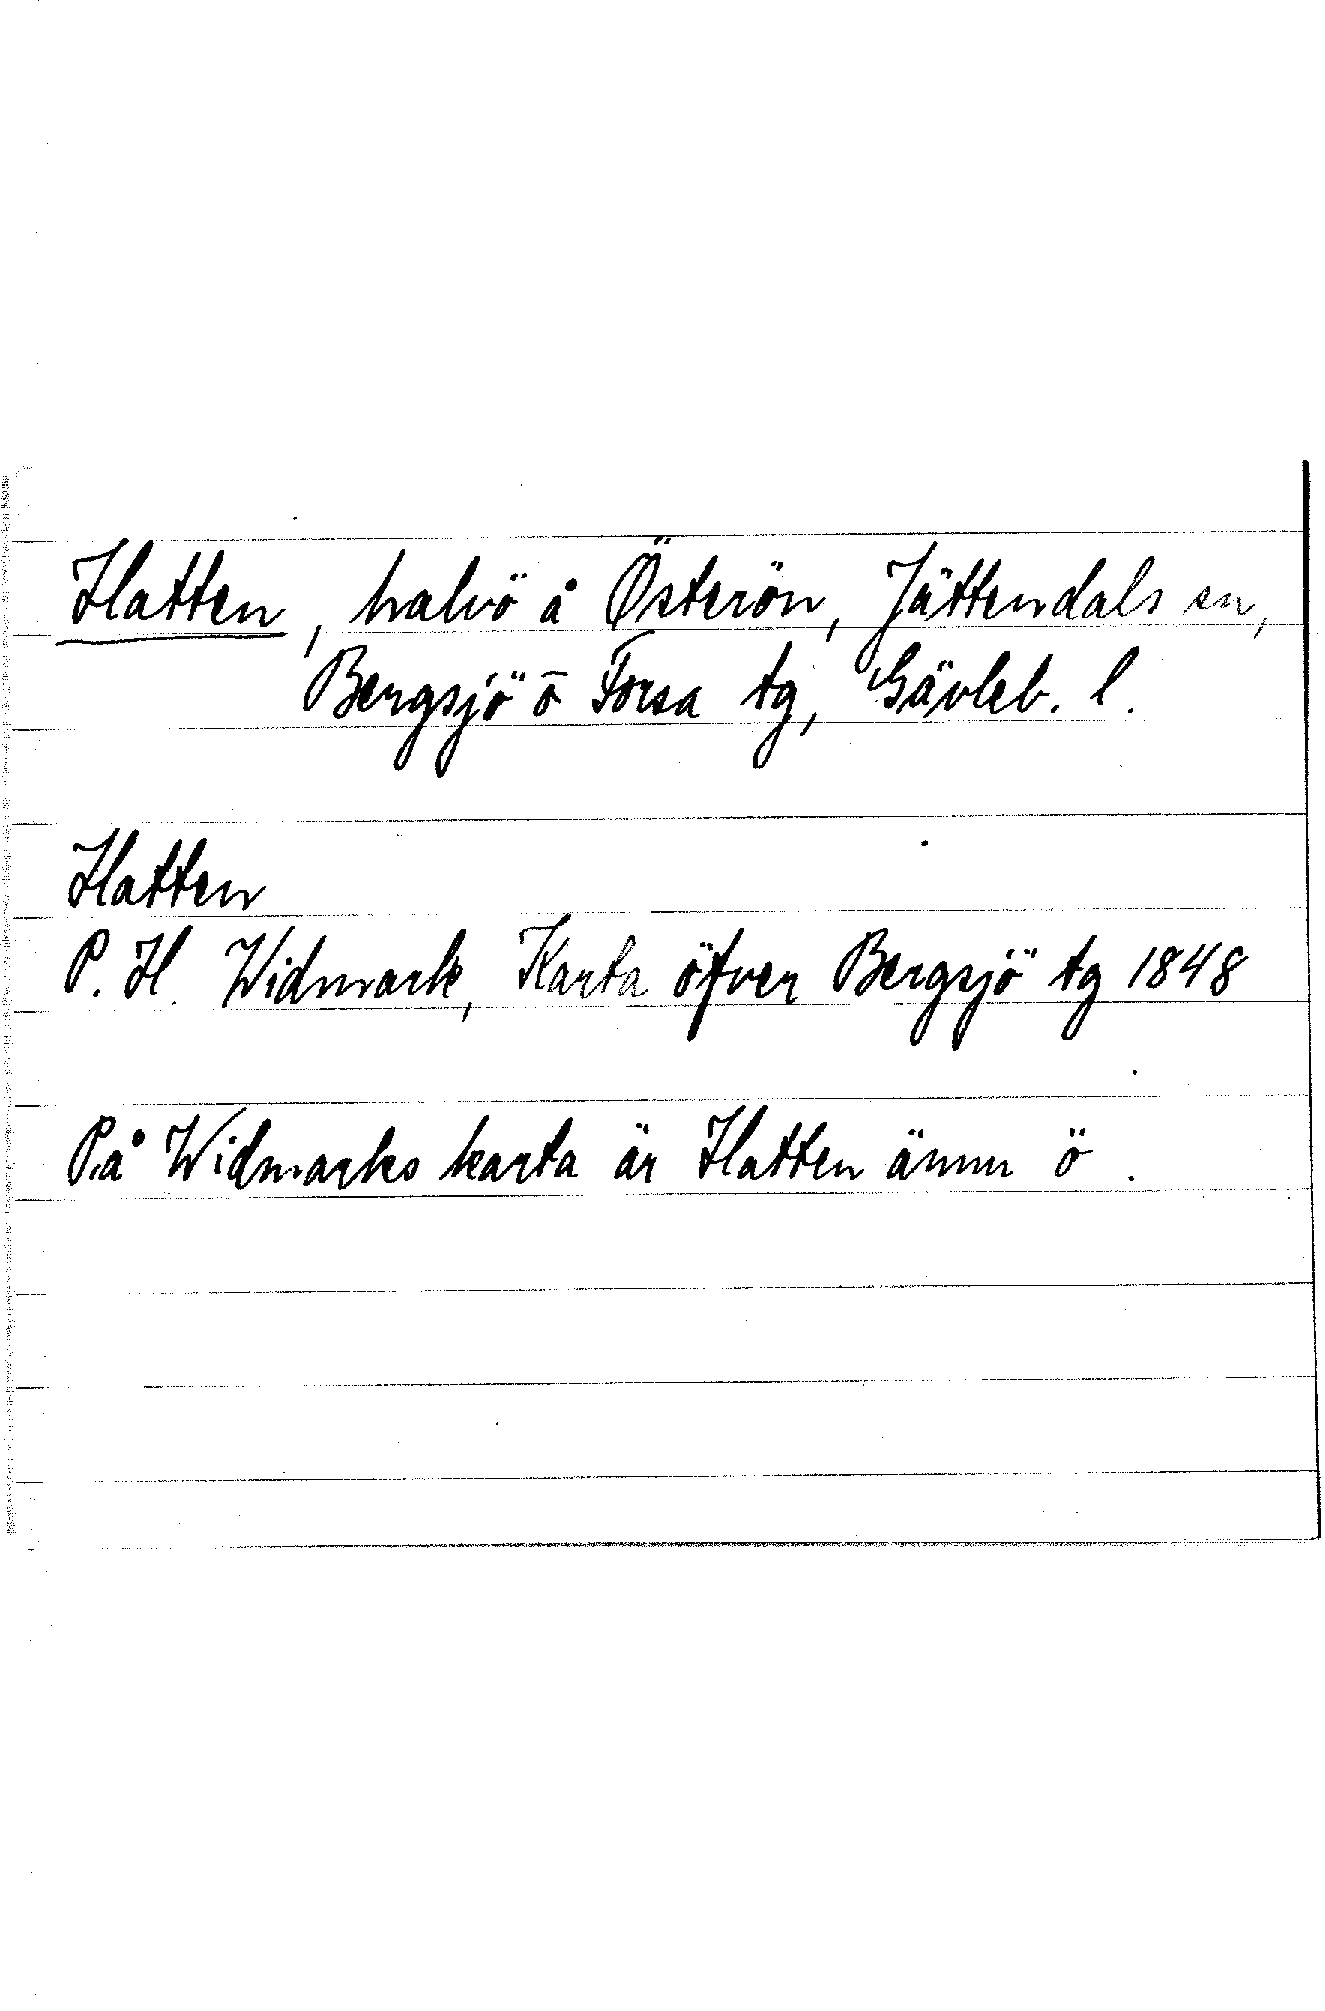 Hatten, halvö å Österön, Jättendals sn,
Bergsjö o Forsa tg, Gävleb. l.
Hatten
P. H. Widmark, Karta öfver Bergsjö tg 1848
På Widmarks karta är Hatten ännu ö.